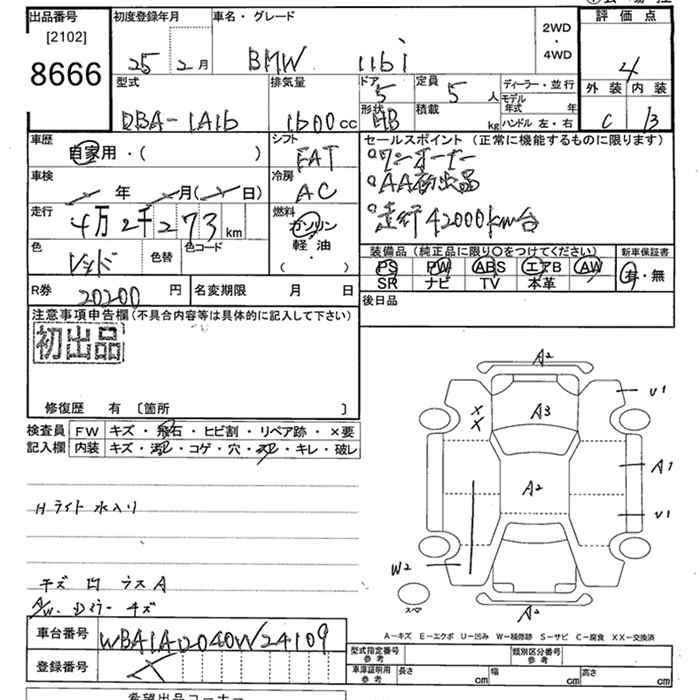 出品番号
[2102]
8666
初度登録年月
25 2月
車名・グレード
BMW 116i
2WD
・
4WD
評価点
4
外装 内装
C B
型式
DBA-1A16
排気量
1600cc
ドア
5
形状
HB
定員
5人
積載
kg
ディーラー・並行
モデル年式 年
ハンドル 左・右
車歴
自家用・( )
シフト
FAT
セールスポイント (正常に機能するものに限ります)
ワンオーナー
AA初出品
走行42000km台
車検
年 月( 日)
冷房
AC
走行
4万2千273km
燃料
ガソリン
軽・油
( )
色
レッド
色替
色コード
装備品 (純正品に限り○をつけてください)
新車保証書
PS PW ABS エアB AW
有・無
SR ナビ TV 本革
R券
20200円
名変期限 月 日
後日品
注意事項申告欄(不具合内容等は具体的に記入して下さい)
初出品
修復歴 有 〔箇所 〕
検査員
記入欄
FW キズ・飛石・ヒビ割・リペア跡・×要
内装 キズ・汚レ・コゲ・穴・スレ・キレ・破レ
Hライト 水入り
キズ 凹 ラスA
A/W. Dミラー キズ
A2
U1
XX
A3
A1
A2
U1
W2
スペア
A2
A―キズ E―エクボ U―凹み W―補修跡 S―サビ C―腐食 XX―交換済
車台番号
WBA1A12040W24109
登録番号
型式指定番号
参考
類別区分番号
参考
車庫証明用
参考
長さ cm
幅 cm
高さ cm
希望出品コーナー